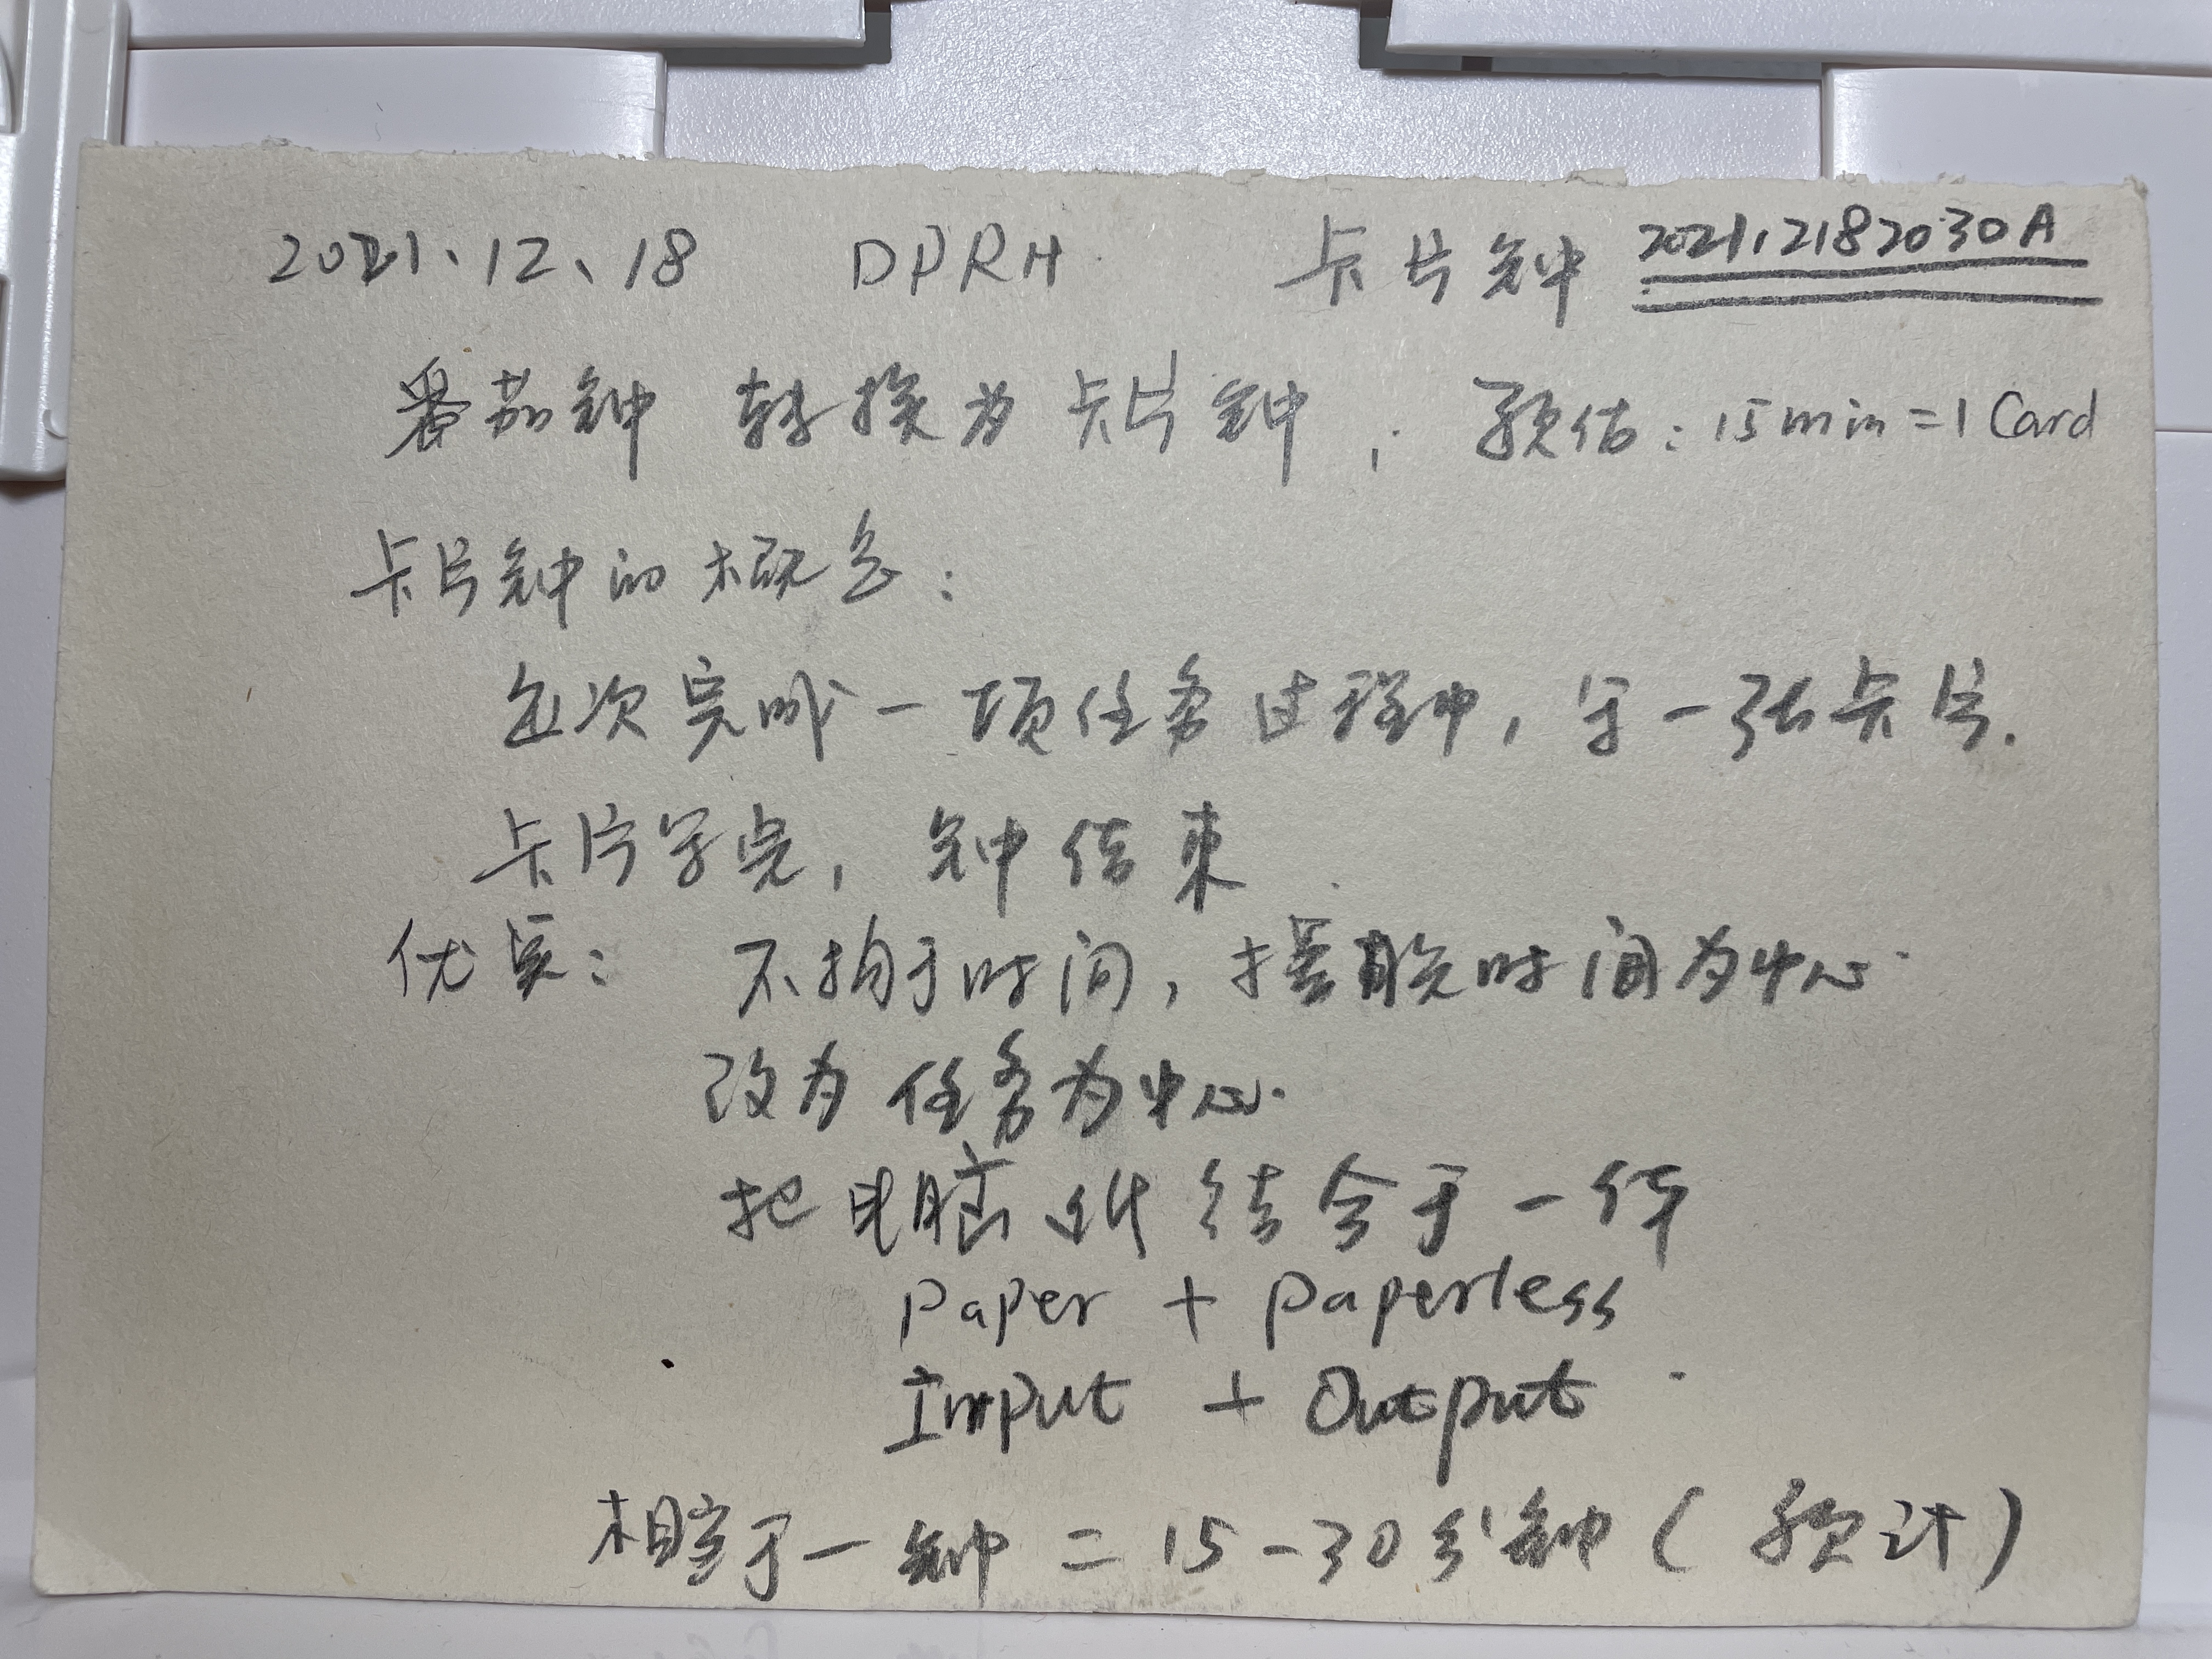 2021、12、18 DPRH 卡片钟 202112182030A
番茄钟 转换为卡片钟, 预估:15min=1 Card
卡片钟的概念:
每次完成一项任务过程中,写一张卡片.
卡片写完,钟结束.
优点: 不拘于时间,摆脱时间为中心.
改为任务为中心.
把电脑 纸 结合于一体
Paper + paperless
Input + Output.
相当于一钟 = 15-30分钟(预计)